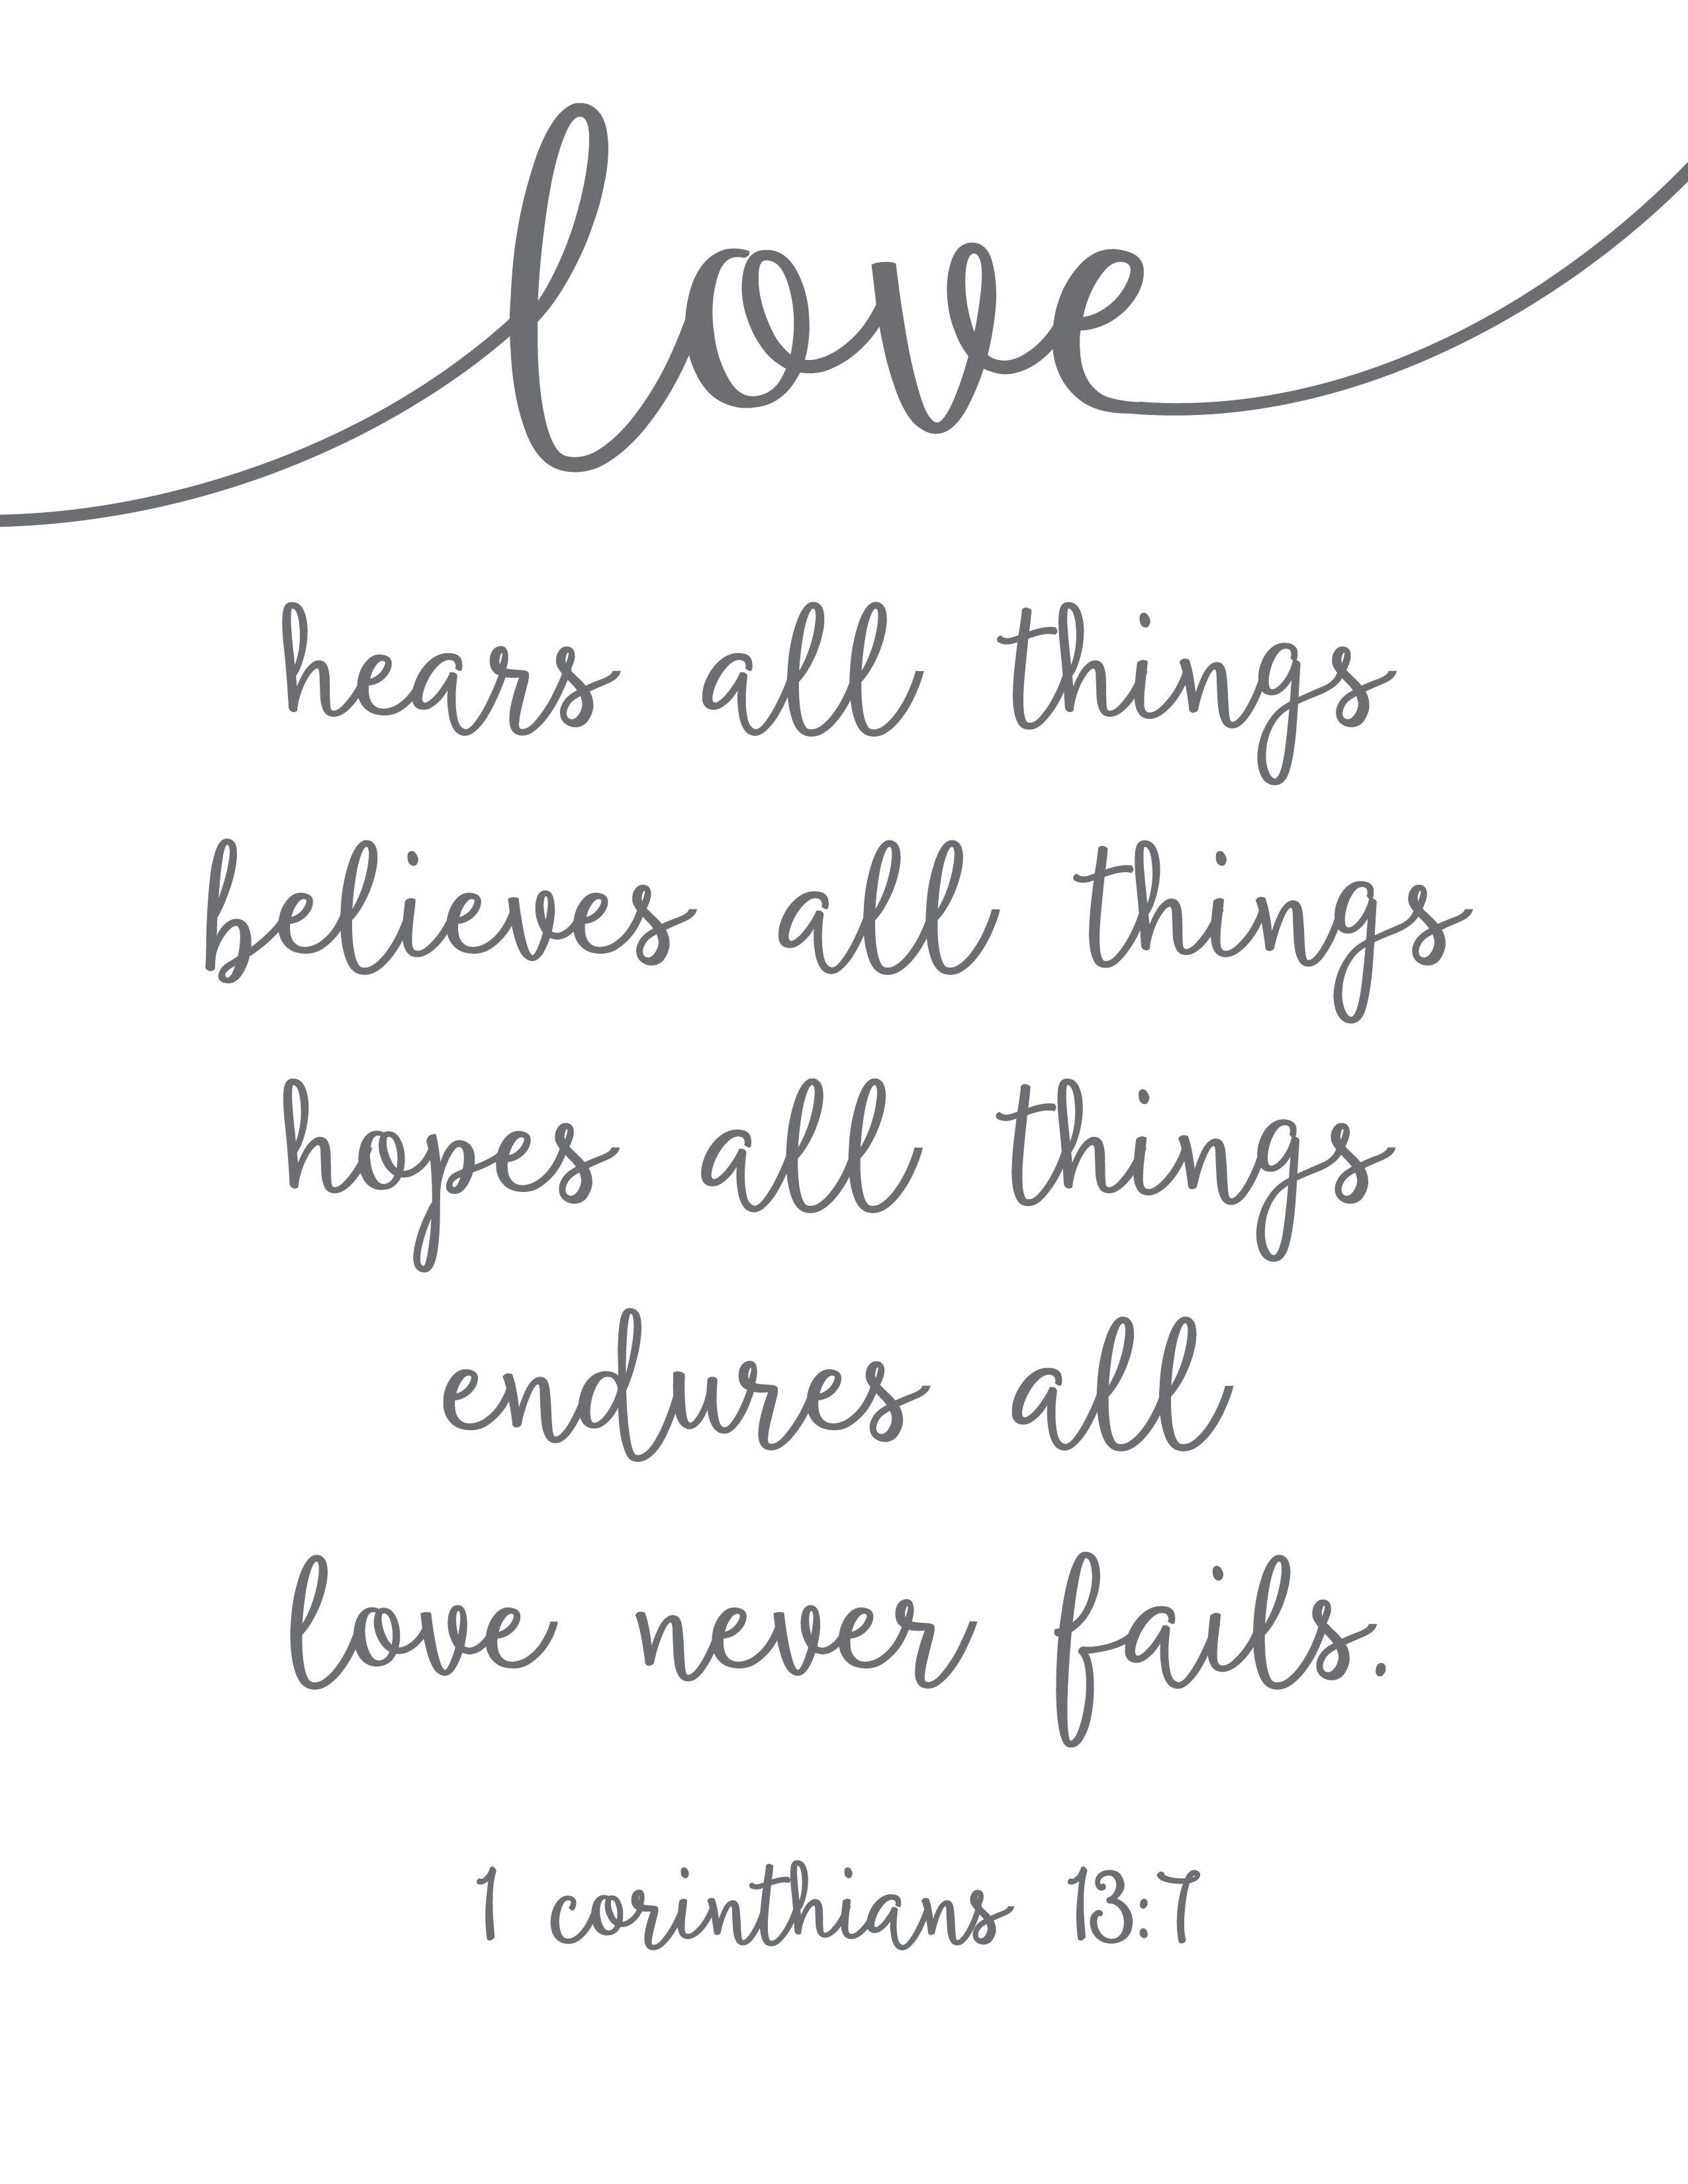 love
hears all things
believes all things
hopes all things
endures all
love never fails.
1 corinthians 13:7